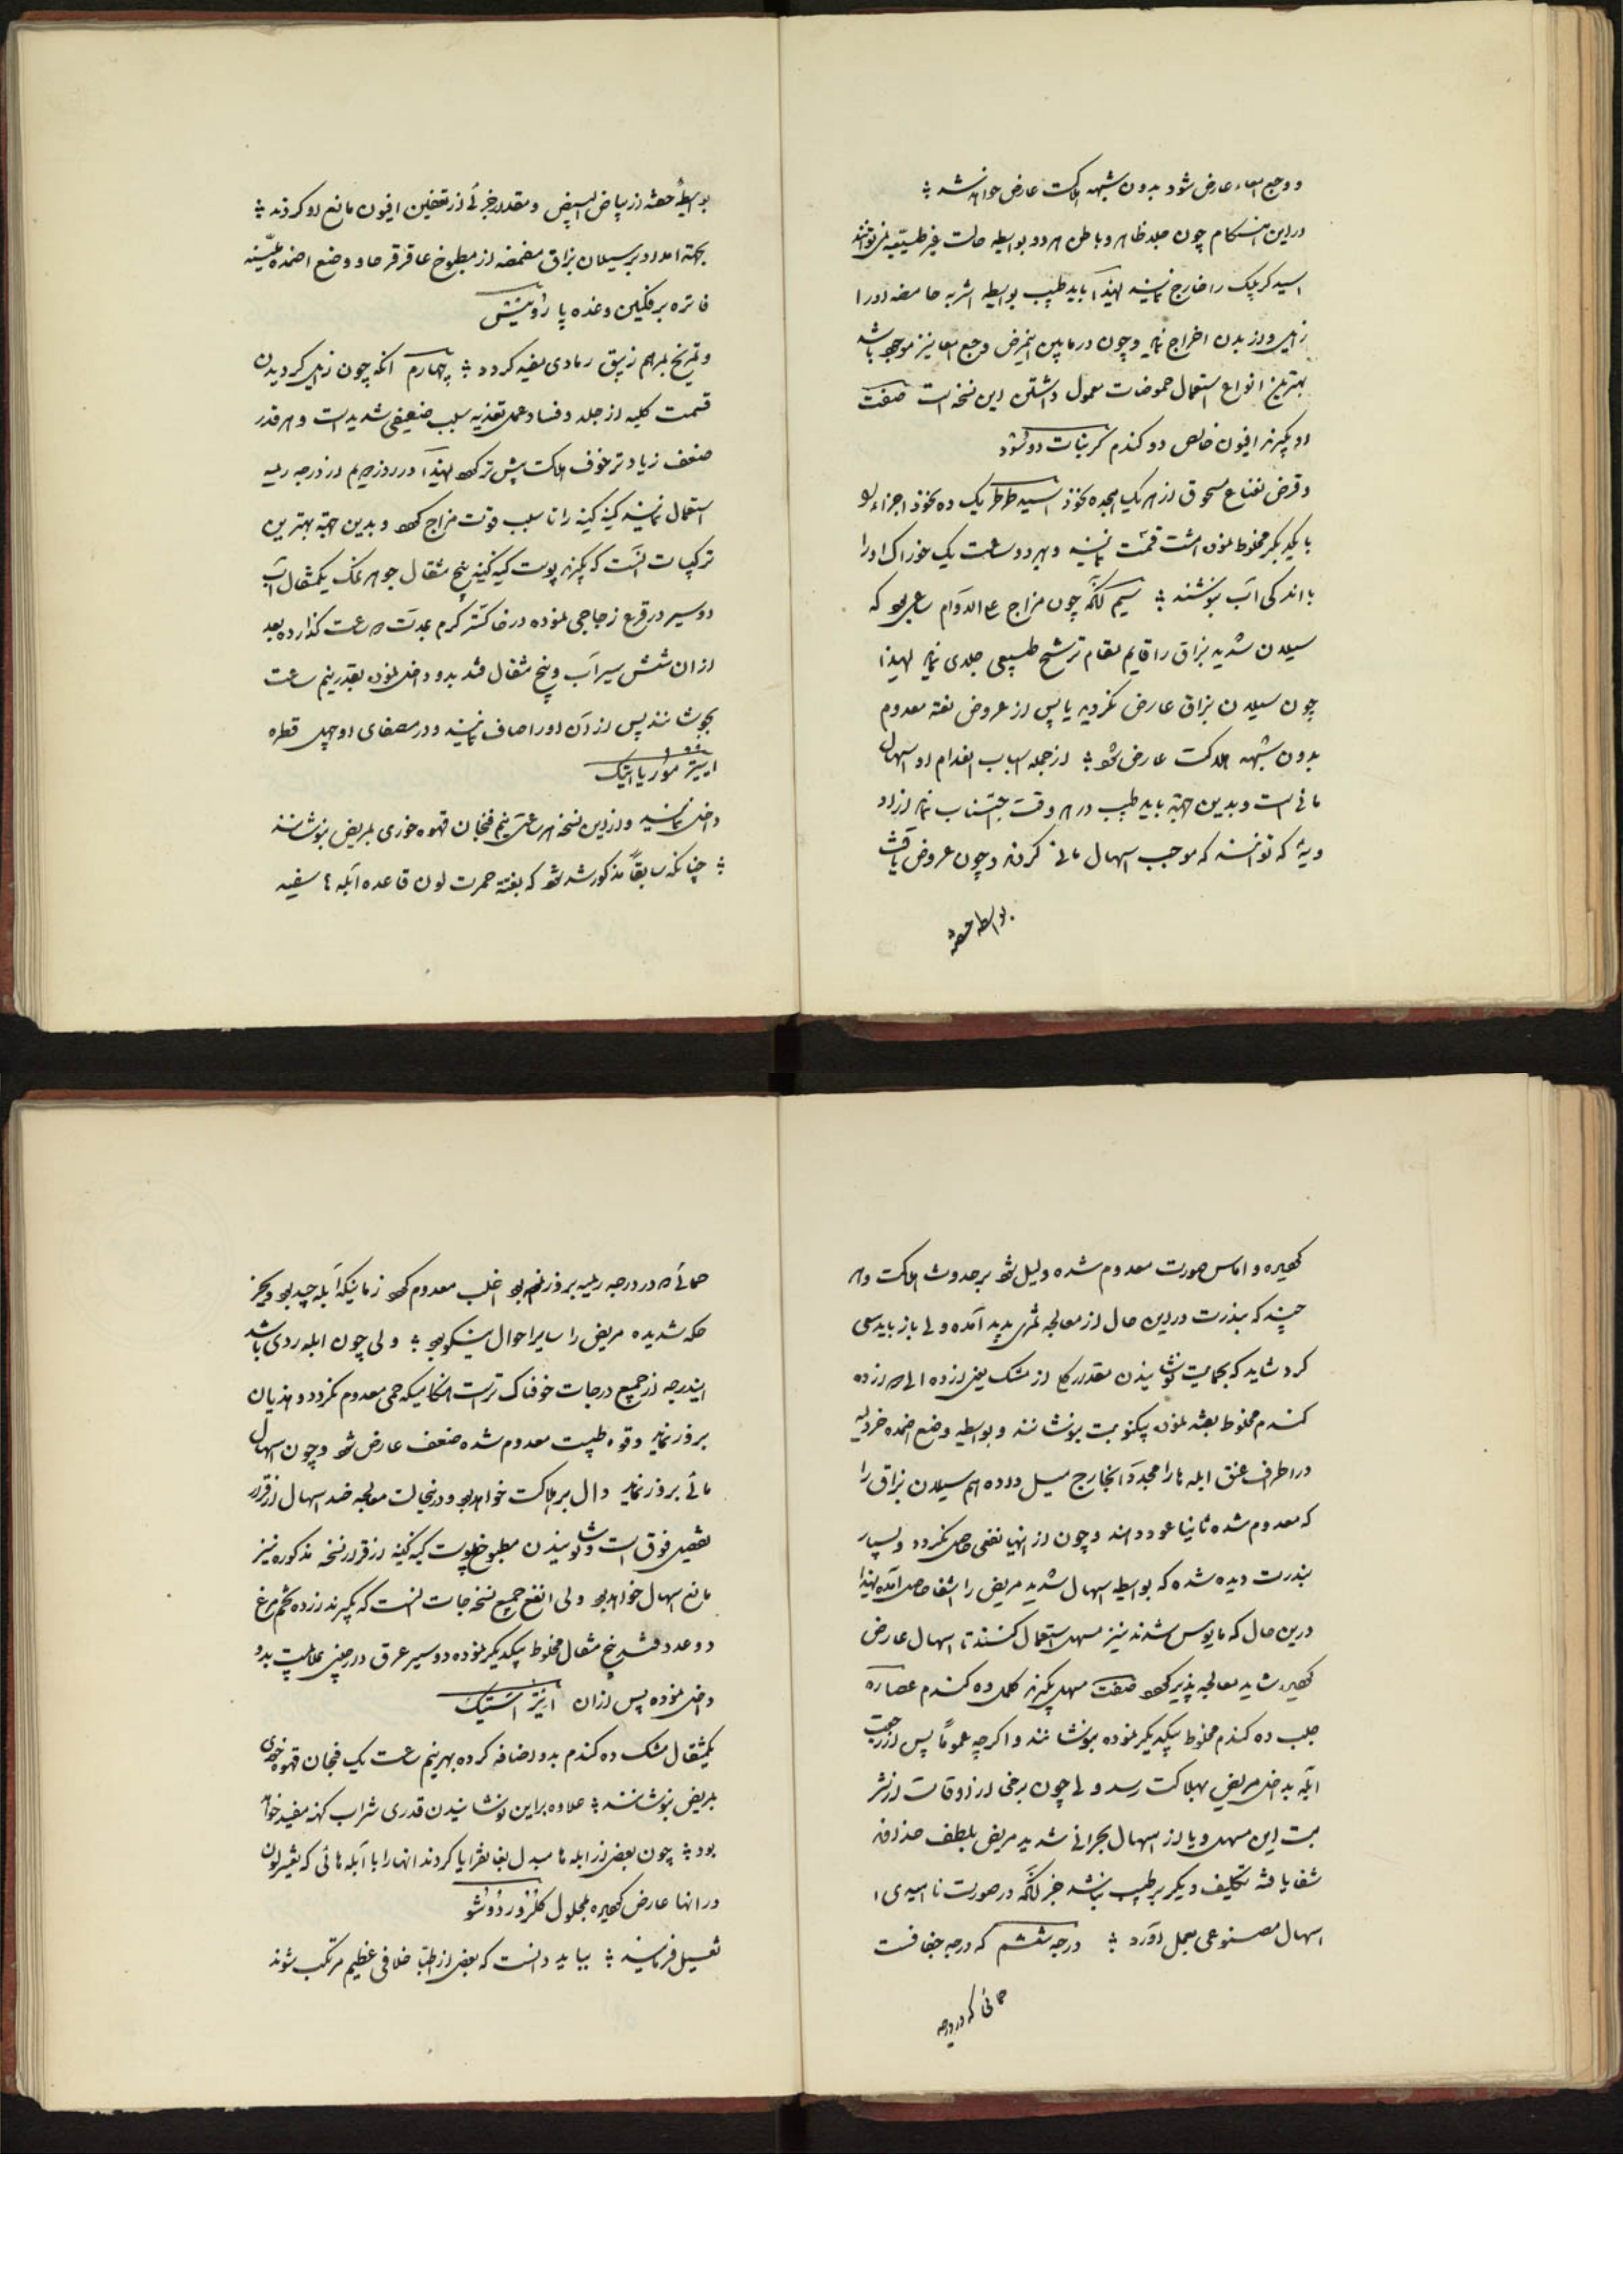 و وجع امعاء عارض شود بدون شبهه هلاکت عارض خواهد شد
در این هنگام چون جلد ظاهر و باطن هر دو بواسطه حالت غیر طبیعیه نمی‌توانند
اسید کربنیک را خارج نمایند لهذا باید طبیب بواسطه اشربه حامضه او را
زایل و از بدن اخراج نماید و چون در مابین این مرض وجع امعا نیز موجود باشد
بهترین انواع استعمال حموضات معمول داشتن این نسخه است صفت
او بگیرند افیون خالص دو گندم کربنات دو سود
و قرص نعناع مسحوق از هر یک هیجده نخود اسید طرطریک ده نخود اجزاء را
با یکدیگر مخلوط نموده هشت قسمت نمایند و بهر دو ساعت یک خوراک او را
با اندکی آب بنوشند سیم آنکه چون مزاج علی الدوام ساعی بود که
سیلان شدید بزاق را قایم مقام ترشح طبیعی جلدی نماید لهذا
چون سیلان بزاق عارض نگردید یا پس از عروض بغتة معدوم
بدون شبهه هلاکت عارض شود از جمله اسباب انعدام او اسهال
مائی است و بدین جهة باید طبیب در هر وقت اجتناب نماید از ادو
ویهٔ که توانند که موجب اسهال مائی گردند و چون عروض یافت
بواسطه حقنه
بواسطهٔ حقنه از بیاض البیض و مقدار جزئی از تعفین افیون مانع او گردند
بجهة امداد بر سیلان بزاق مضمضه از مطبوخ عاقرقرحا و وضع اضمده ملینه
فاتره بر فکین و غده پاروتیتس
و تمریخ بمرهم زیبق رمادی مفید گردد چهارم آنکه چون زایل گردیدن
قسمت کلیه از جلد و فساد عمل تغذیه سبب ضعیفی شدید است و هر قدر
ضعف زیادتر خوف هلاکت بیش‌تر بود لهذا در روز سیم از درجه ریمیه
استعمال نمایند کینه کینه را تا سبب قوت مزاج بود و بدین جهة بهترین
ترکیبات آنست که بگیرند پوست کینه کینه پنج مثقال جوهر نمک یکمثقال آب
دو سیر در قرع زجاجی نموده در خاکستر گرم بمدت سه ساعت گذارده بعد
از آن شش سیر آب و پنج مثقال قند بدو داخل نموده بقدر نیم ساعت
بجوشانند پس از آن او را صاف نمایند و در مصفای او چهل قطره
ایتیر موریاتیک
داخل نمایند و از این نسخه هر ساعتی نیم فنجان قهوه خوری بمریض بنوشانند
چنانکه سابقاً مذکور شد که بغتة حمرت لون قاعده آبله‌ها سفید
گردیده و اماس صورت معدوم شده دلیل شود بر حدوث هلاکت و هر
چند که بندرت در این حال از معالجه ثمری پدید آمده ولی باز باید سعی
کرد شاید که بحمایت نوشانیدن مقدار کلی از مشک یعنی از ده الی پانزده
گندم مخلوط بقند نموده بیک نوبت بنوشانند و بواسطه وضع اضمده خردلیه
در اطراف عنق ابله‌ها را مجدداً بخارج میل داده هم سیلان بزاق را
که معدوم شده ثانیا عود دهند و چون از اینها نفعی حاصل نگردد و بسیار
بندرت دیده شده که بواسطه اسهال شدید مریض را شفا حاصل آمده لهذا
درین حال که مایوس شدند نیز مسهل استعمال کنند تا اسهال عارض
گردیده شاید معالجه پذیر بود صفت مسهل بگیرند کلمل ده گندم عصاره
جلب ده گندم مخلوط بیکدیگر نموده بنوشانند و اگرچه عموماً پس از رجعت
آبله بداخل مریض بهلاکت رسد ولی چون برخی از اوقات از شر
بت این مسهل و یا از اسهال بحرانی شدید مریض بلطف خداوند
شفا یافته تکلیف دیگر بر طبیب نباشد جز آنکه در صورت ناامیدی
اسهال مصنوعی بعمل آورد درجه ششم که درجه جفافست
حمائی که در درجه
حمائی که در درجه ریمیه بروز نموده بود اغلب معدوم بود زمانیکه آبله جید بود و بجز
حکه شدیده مریض را سایر احوال نیکو بود ولی چون ابله ردی باشد
ایندرجه از جمیع درجات خوفناک‌تر است هنگامیکه حمی معدوم نگردد و هذیان
بروز نماید و قوه طبیعت معدوم شده ضعف عارض شود و چون اسهال
مائی بروز نماید دال بر هلاکت خواهد بود و در این حالت معالجه ضد اسهال از قرار
تفصیل فوق است و نوشانیدن مطبوخ پوست کینه کینه از قرار نسخه مذکوره نیز
مانع اسهال خواهد بود ولی انفع جمیع نسخه‌جات آنست که بگیرند زرده تخم مرغ
دو عدد قند پنج مثقال مخلوط بیکدیگر نموده دو سیر عرق دارچینی بملایمت بدو
داخل نموده پس از آن ایتیر استیک
یکمثقال مشک ده گندم بدو اضافه کرده بهر نیم ساعت یک فنجان قهوه خوری
بمریض بنوشانند علاوه بر این نوشانیدن قدری شراب کهنه مفید خواهد
بود چون بعضی از ابله‌ها مبدل بغانقرایا گردند آنها را با آبله‌هائی که تغییر لون
در آنها عارض گردیده بمحلول کلرور دو سود
تغسیل فرمایند بباید دانست که بعضی از اطبا خلافی عظیم مرتکب شوند